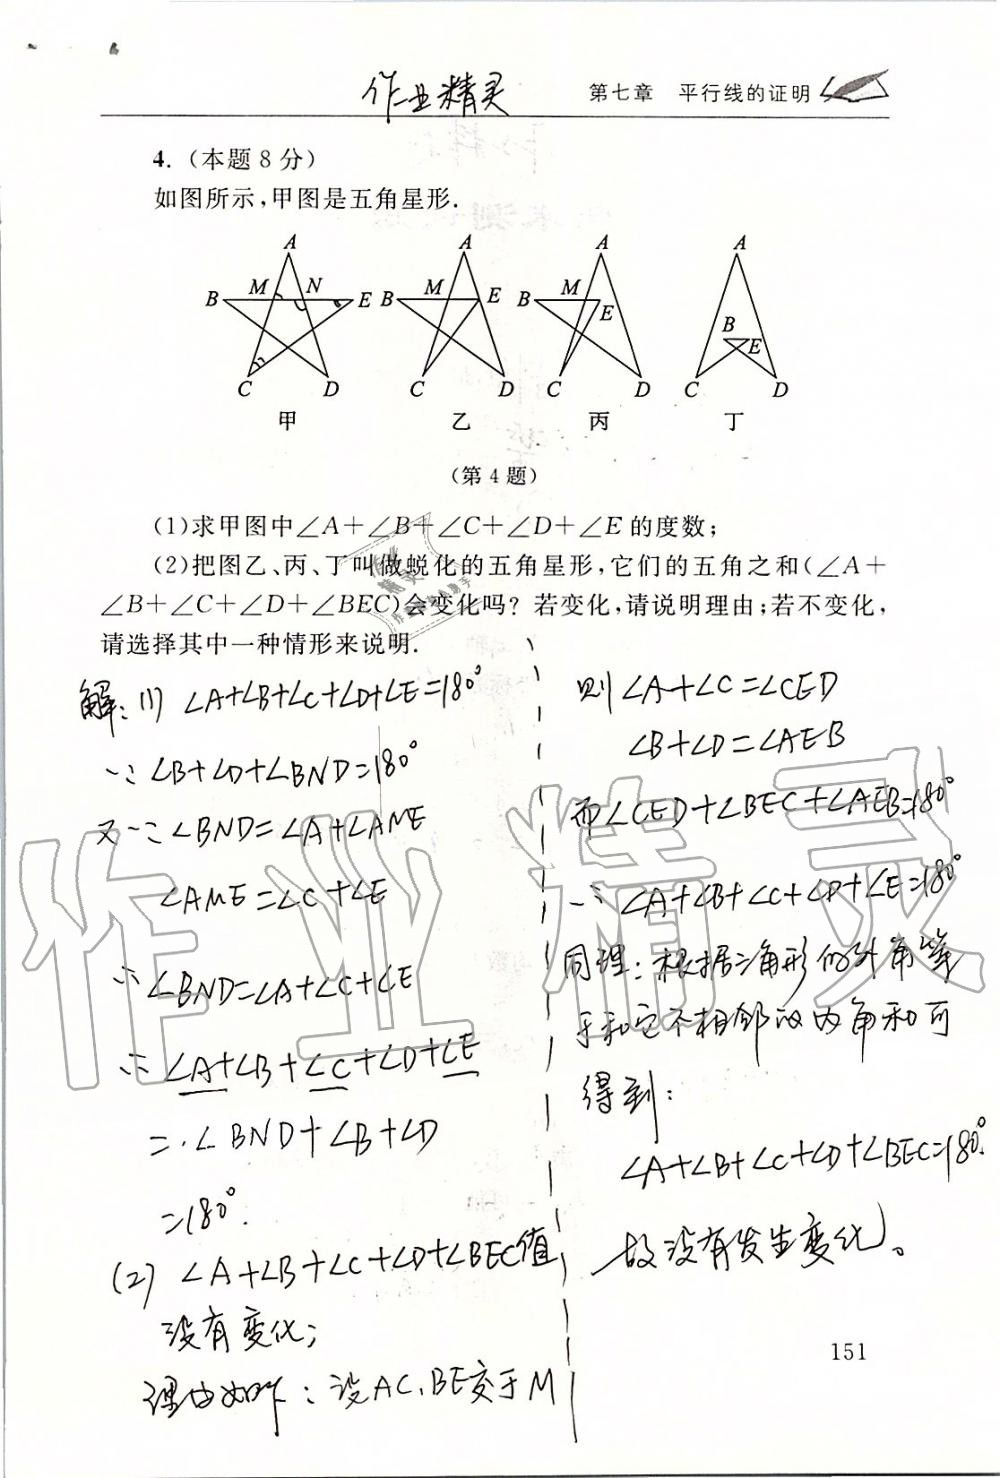 作业精灵
第七章 平行线的证明
4.（本题8分）
如图所示,甲图是五角星形.
A A A A
B M N E B M E B M E B E
C D C D C D C D
甲 乙 丙 丁
(第4题)
(1)求甲图中∠A+∠B+∠C+∠D+∠E的度数;
(2)把图乙、丙、丁叫做蜕化的五角星形,它们的五角之和(∠A+
∠B+∠C+∠D+∠BEC)会变化吗? 若变化,请说明理由;若不变化,
请选择其中一种情形来说明.
解:(1) ∠A+∠B+∠C+∠D+∠E=180°
∵∠B+∠D+∠BND=180°
又∵∠BND=∠A+∠AME
∠AME=∠C+∠E
∴∠BND=∠A+∠C+∠E
∴∠A+∠B+∠C+∠D+∠E
=∠BND+∠B+∠D
=180°.
(2) ∠A+∠B+∠C+∠D+∠BEC值
没有变化;
理由如下:设AC、BE交于M
则∠A+∠C=∠CED
∠B+∠D=∠AEB
而∠CED+∠BEC+∠AEB=180°
∴∠A+∠B+∠C+∠D+∠E=180°
同理:根据三角形的外角等
于和它不相邻的内角和可
得到:
∠A+∠B+∠C+∠D+∠BEC=180°.
故没有发生变化。
151
作业精灵